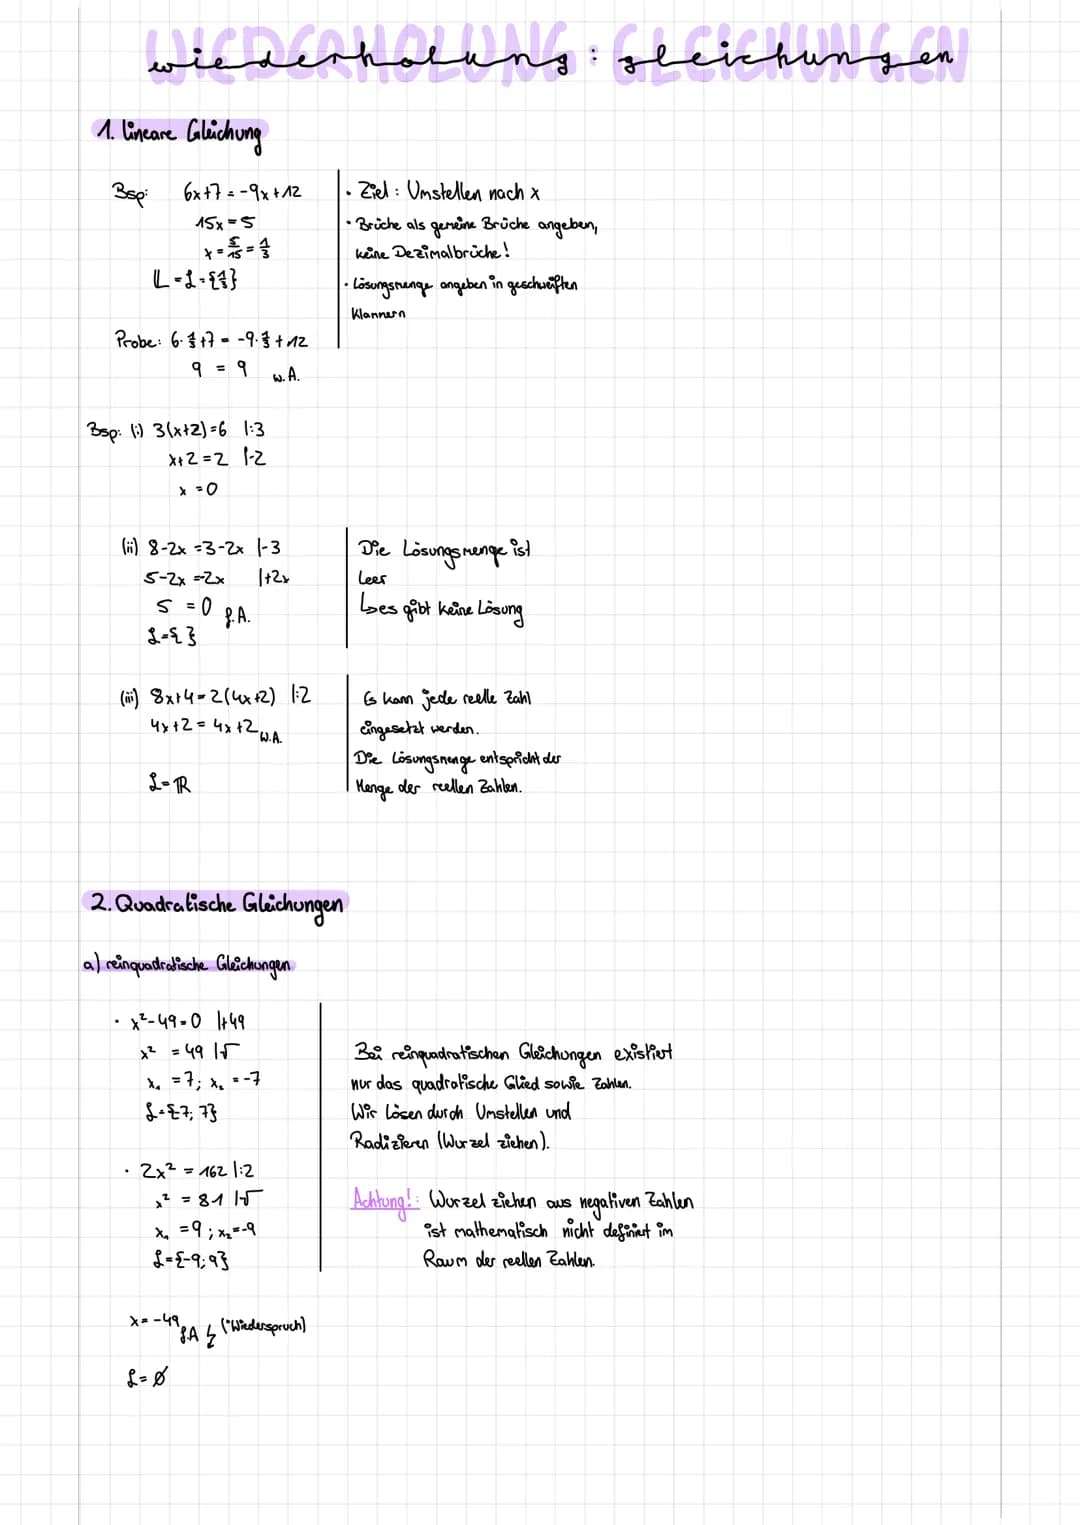 WIEDERHOLUNG: GLEICHUNGEN
wiederholung: gleichungen
1. lineare Gleichung
Bsp: 6x+7 = -9x+12
15x = 5
x = 5/15 = 1/3
𝕃 = ℒ = {1/3}
Probe: 6·1/3+7 = -9·1/3+12
9 = 9 w.A.
· Ziel: Umstellen nach x
· Brüche als gemeine Brüche angeben,
keine Dezimalbrüche!
· Lösungsmenge angeben in geschweiften
Klammern
Bsp: (i) 3(x+2)=6 |:3
x+2=2 |-2
x = 0
(ii) 8-2x = 3-2x |-3
5-2x = -2x |+2x
5 = 0 f.A.
ℒ={ }
Die Lösungsmenge ist
leer
↳ es gibt keine Lösung
(iii) 8x+4 = 2(4x+2) |:2
4x+2 = 4x+2 w.A.
ℒ=ℝ
Es kann jede reelle Zahl
eingesetzt werden.
Die Lösungsmenge entspricht der
Menge der reellen Zahlen.
2. Quadratische Gleichungen
a) reinquadratische Gleichungen
· x²-49=0 |+49
x² = 49 |√
x₁ = 7; x₂ = -7
ℒ={-7; 7}
· 2x² = 162 |:2
x² = 81 |√
x₁ = 9; x₂=-9
ℒ={-9; 9}
Bei reinquadratischen Gleichungen existiert
nur das quadratische Glied sowie Zahlen.
Wir lösen durch Umstellen und
Radizieren (Wurzel ziehen).
Achtung!: Wurzel ziehen aus negativen Zahlen
ist mathematisch nicht definiert im
Raum der reellen Zahlen.
x = -49 fA ↯ (^Wiederspruch)
ℒ = ∅